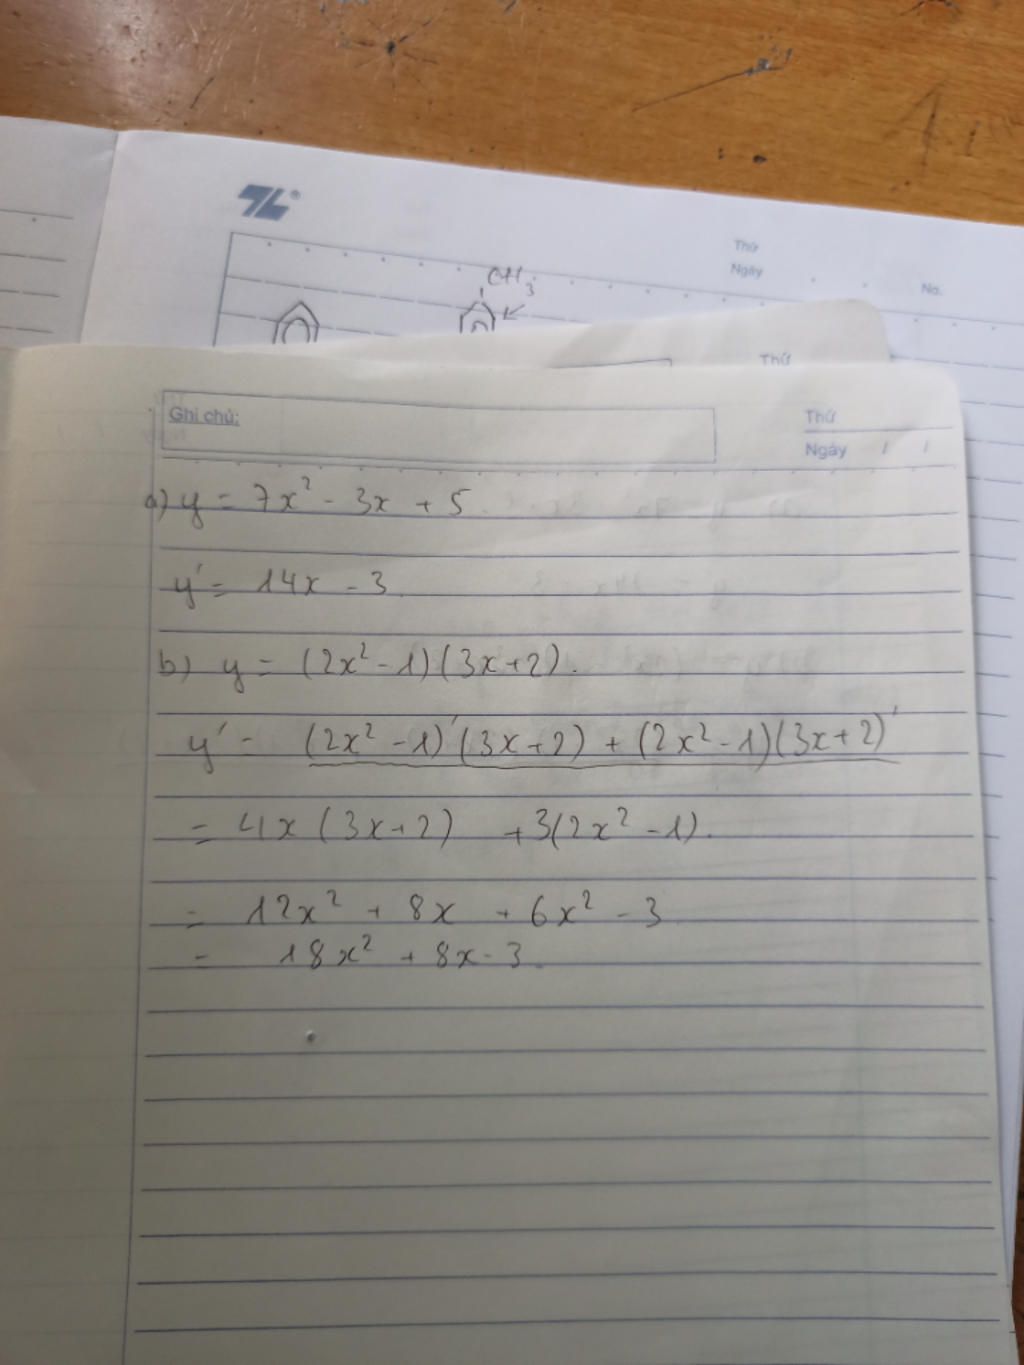 Thứ
Ngày
No.
CH3
Thứ
Ghi chú:
Thứ
Ngày / /
a) y = 7x² - 3x + 5.
y' = 14x - 3.
b) y = (2x² - 1)(3x+2).
y' = (2x² - 1)'(3x+2) + (2x² - 1)(3x+2)'
= 4x(3x+2) + 3(2x² - 1).
= 12x² + 8x + 6x² - 3
= 18x² + 8x - 3.